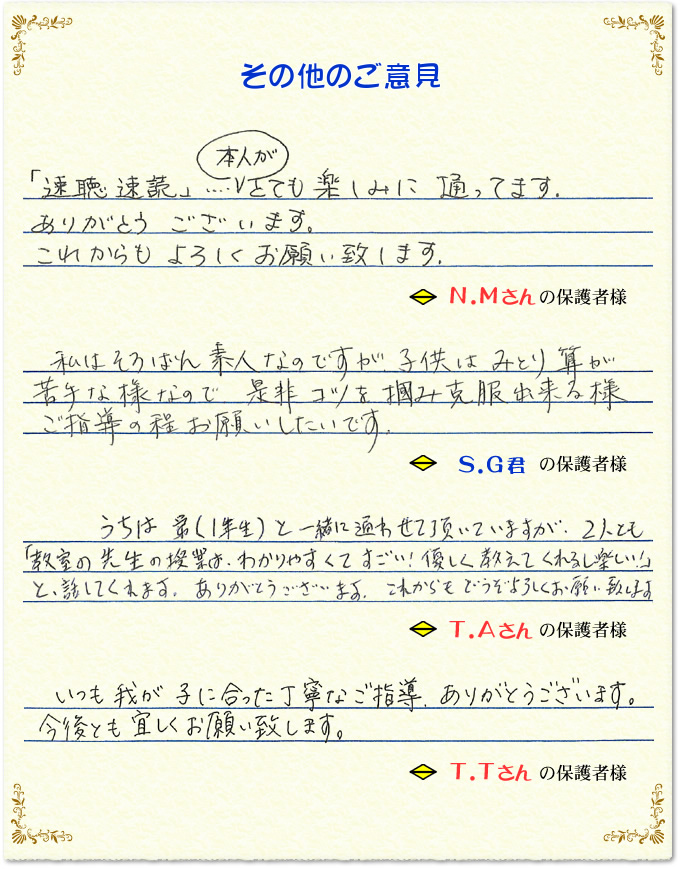 その他のご意見
本人が
「速聴速読」…. とても楽しみに 通ってます.
ありがとう ございます。
これからも よろしくお願い致します.
N.Mさんの保護者様
私はそろばん素人なのですが、子供は みとり算が
苦手な様なので 是非コツを掴み克服出来る様
ご指導の程お願いしたいです.
S.G君 の保護者様
うちは 弟(1年生)と一緒に通わせて頂いていますが、2人とも
「教室の先生の授業は、わかりやすくてすごい!優しく教えてくれるし楽しい!」
と、話してくれます。ありがとうございます。これからもどうぞよろしくお願い致します
T.Aさんの保護者様
いつも我が子に合った丁寧なご指導、ありがとうございます。
今後とも宜しくお願い致します。
T.Tさんの保護者様